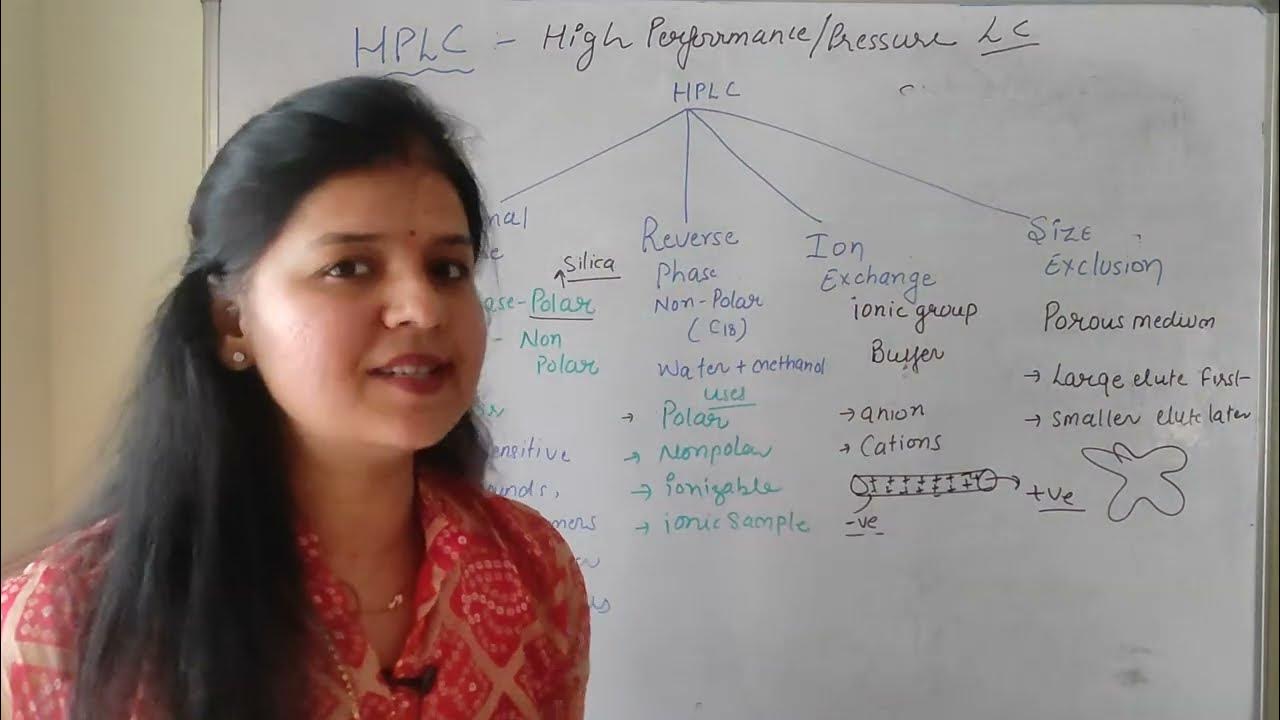 HPLC - High Performance/Pressure LC
HPLC
Silica
Polar
Non
Polar
Reverse
Phase
Non-Polar
(C18)
Water + methanol
uses
→ Polar
→ Nonpolar
→ ionizable
→ ionic sample
Ion
Exchange
ionic group
Buffer
→ anion
→ Cations
+ve
-ve
Size
Exclusion
Porous medium
→ Large elute First
→ Smaller elute later